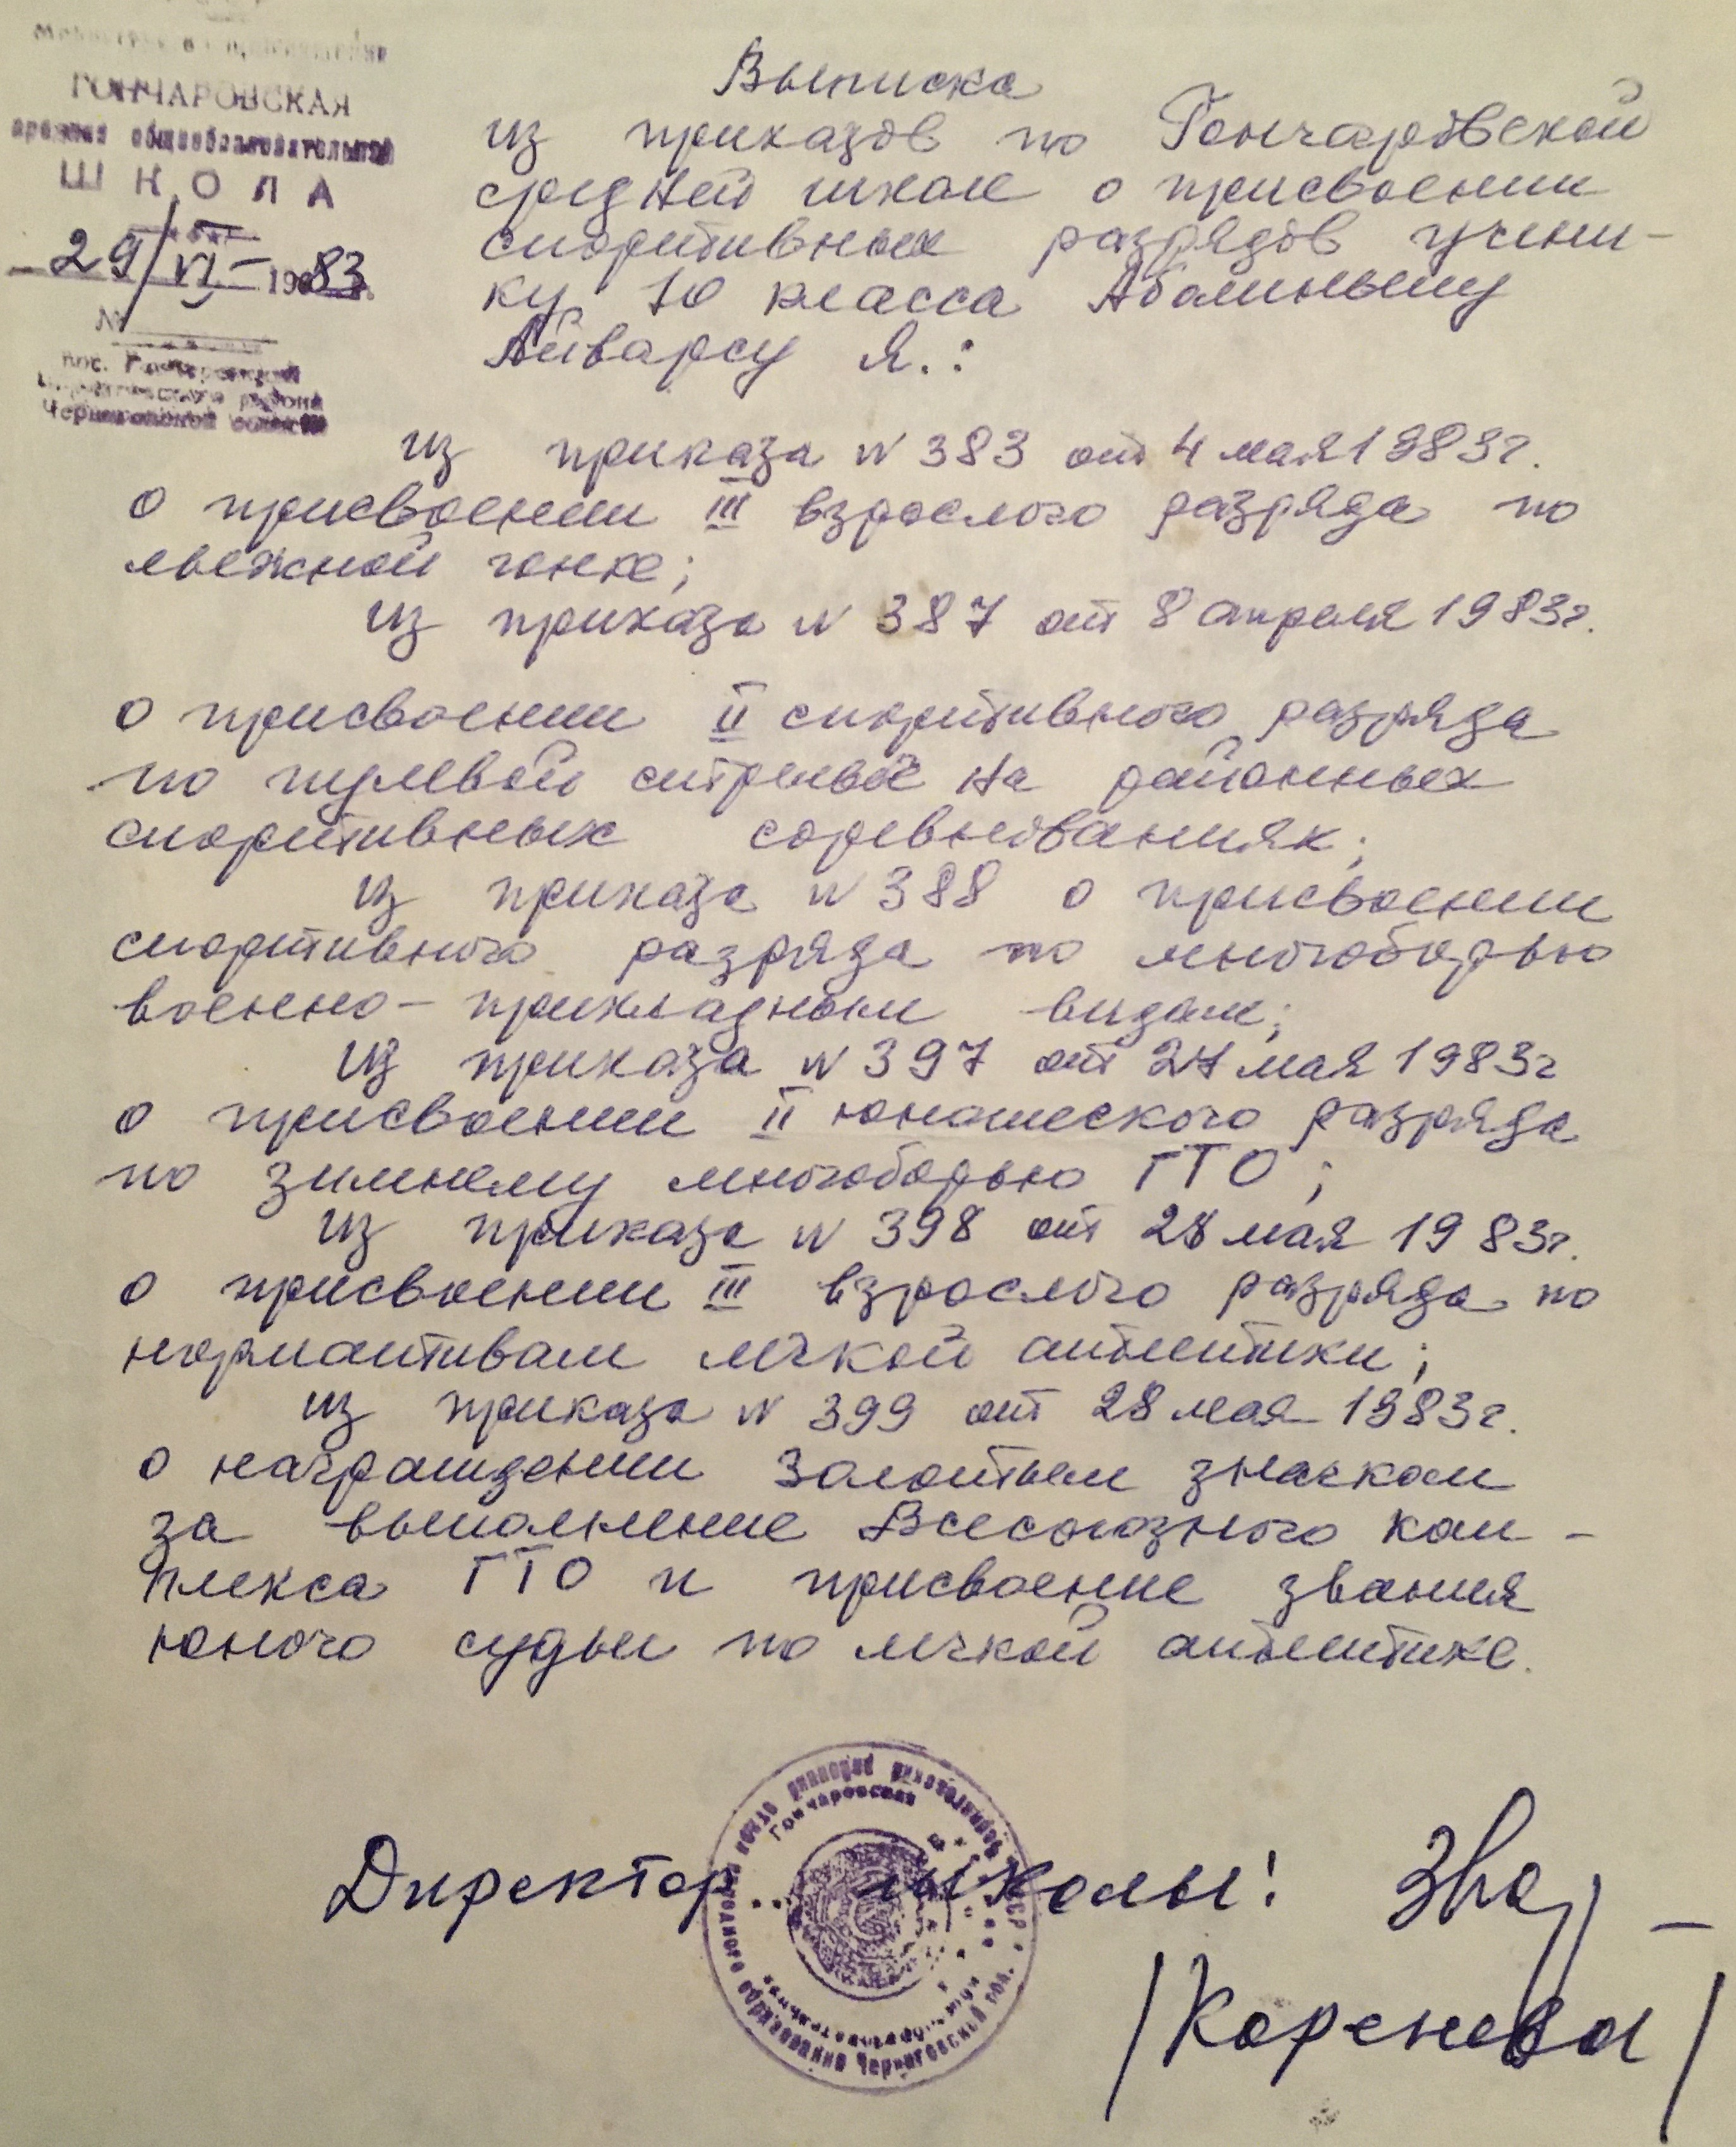 ГОНЧАРОВСКАЯ
средняя общеобразовательная
ШКОЛА
29/VI - 1983 г.
№
пос. Гончаровский
района
Черниговской области
Выписка
из приказов по Гончаровской
средней школе о присвоении
спортивных разрядов учени-
ку 10 класса Аболиньшу
Айварсу Я.:
из приказа N 383 от 4 мая 1983г.
о присвоении III взрослого разряда по
лыжной гонке;
из приказа N 387 от 8 апреля 1983г.
о присвоении II спортивного разряда
по пулевой стрельбе на районных
спортивных соревнованиях;
из приказа N 388 о присвоении
спортивного разряда по многоборью
военно-прикладным видам;
из приказа N 397 от 27 мая 1983г
о присвоении II юношеского разряда
по зимнему многоборью ГТО;
из приказа N 398 от 28 мая 1983г.
о присвоении III взрослого разряда по
нормативам легкой атлетики;
из приказа N 399 от 28 мая 1983г.
о награждении Золотым значком
за выполнение Всесоюзного ком-
плекса ГТО и присвоение звания
юного судьи по легкой атлетике.
Гончаровская
народного образования Черниговской
Директор школы:
/Коренева/